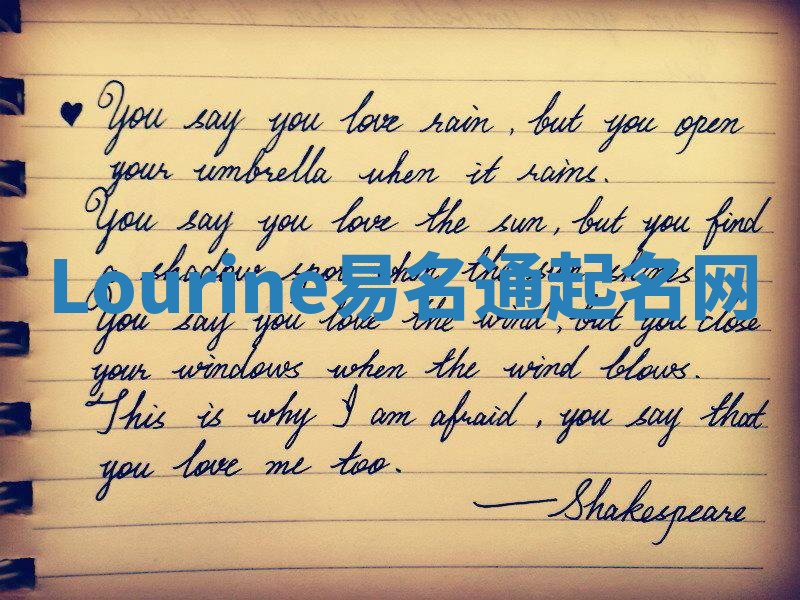 You say you love rain, but you open
your umbrella when it rains.
You say you love the sun, but you find
a shadow spot when the sun shines
Lourine易名通起名网
You say you love the wind, but you close
your windows when the wind blows.
This is why I am afraid, you say that
you love me too.
—Shakespeare